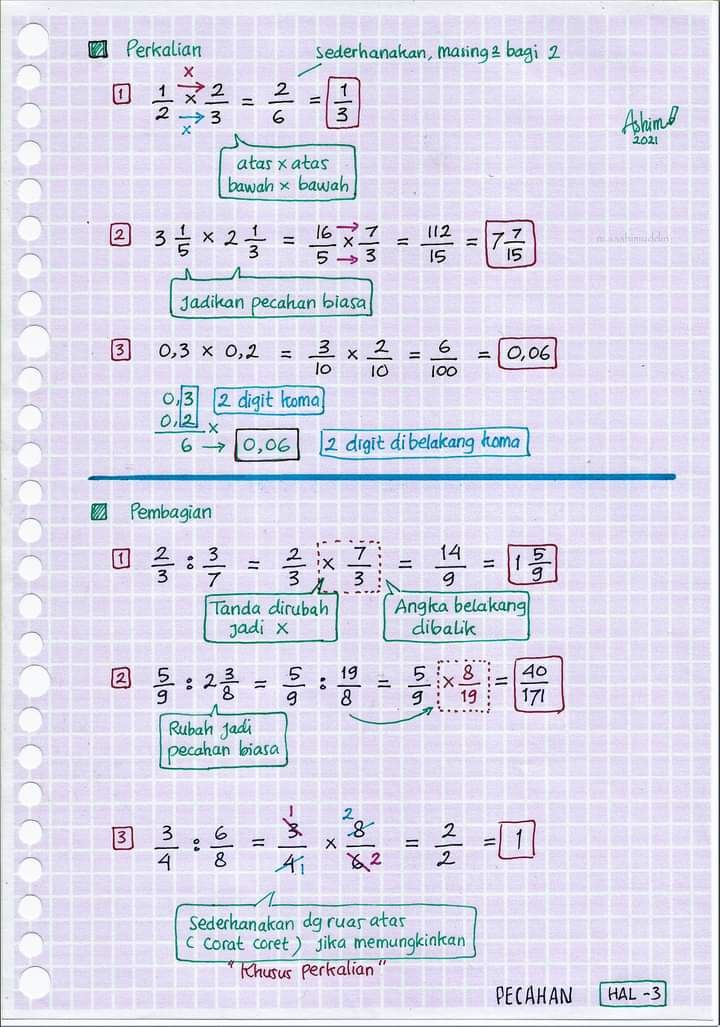 Perkalian
Sederhanakan, masing2 bagi 2
1 1/2 × 2/3 = 2/6 = 1/3
×
×
atas × atas
bawah × bawah
Ashim
2021
2 3 1/5 × 2 1/3 = 16/5 × 7/3 = 112/15 = 7 7/15
Jadikan pecahan biasa
3 0,3 × 0,2 = 3/10 × 2/10 = 6/100 = 0,06
0,3 2 digit koma
0,2 ×
6 → 0,06 2 digit dibelakang koma
Pembagian
1 2/3 : 3/7 = 2/3 × 7/3 = 14/9 = 1 5/9
Tanda dirubah
jadi X
Angka belakang
dibalik
2 5/9 : 2 3/8 = 5/9 : 19/8 = 5/9 × 8/19 = 40/171
Rubah jadi
pecahan biasa
1 2
3 3/4 : 6/8 = 3/4 × 8/6 = 2/2 = 1
1 2
Sederhanakan dg ruas atas
(corat coret) jika memungkinkan
"Khusus perkalian"
PECAHAN HAL -3